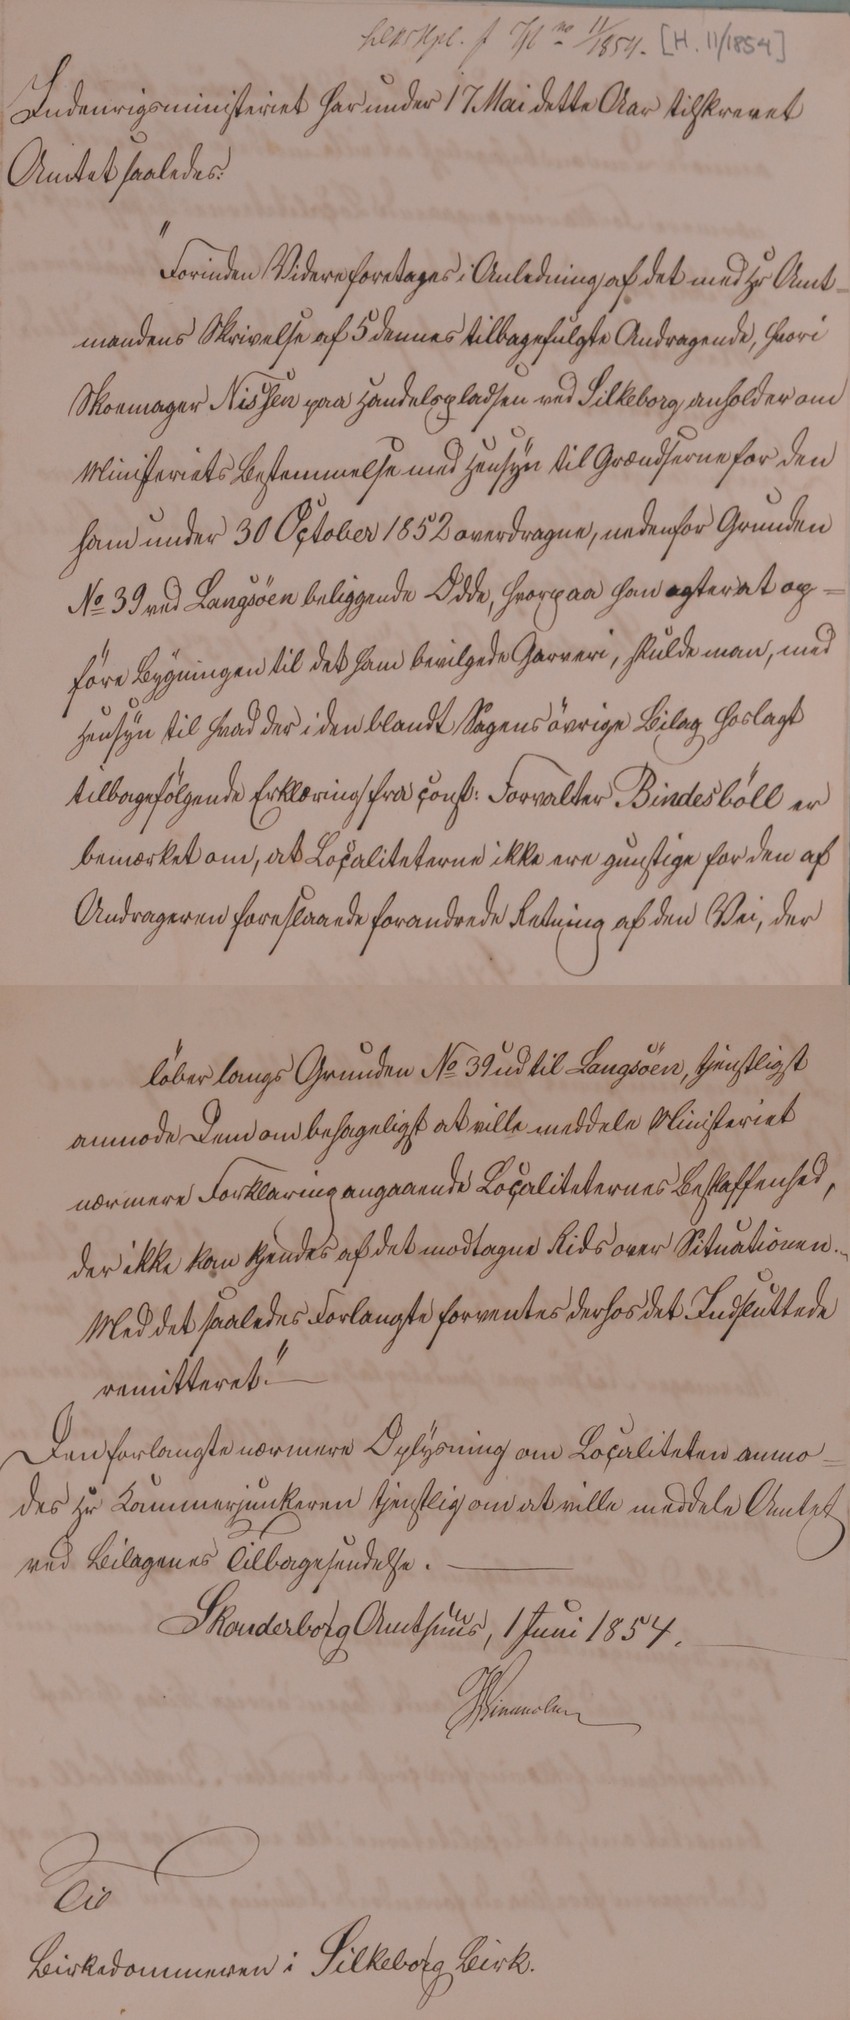 Hdlspl. J No 11/1854. [H. 11/1854]
Indenrigsministeriet har under 17 Mai dette Aar tilskrevet
Amtet saaledes:
"Forinden Videre foretages i Anledning af det med Hr Amt-
mandens Skrivelse af 5 dennes tilbagefulgte Andragende, hvori
Skoemager Nissen paa Handelspladsen ved Silkeborg anholder om
Ministeriets Bestemmelse med Hensyn til Grændserne for den
ham under 30 October 1852 overdragne, nedenfor Grunden
No 39 ved Langsöen beliggende Odde, hvorpaa han agter at op-
före Bygningen til det ham bevilgede Garveri, skulde man, med
Hensyn til hvad der i den blandt Sagens övrige Bilag hoslagt
tilbagefölgende Erklæring fra const: Forvalter Bindesböll er
bemærket om, at Localiteterne ikke ere gunstige for den af
Andrageren foreslaaede forandrede Retning af den Vei, der
löber langs Grunden No 39 ud til Langsöen, tjenstligst
anmode Dem om behageligst at ville meddele Ministeriet
nærmere Forklaring angaaende Localiteternes Beskaffenhed,
der ikke kan kjendes af det modtagne Rids over Situationen.
Med det saaledes Forlangte forventes derhos det Indsluttede
remitteret."
Den forlangte nærmere Oplysning om Localiteten anmo-
des Hr Kammerjunkeren tjenstlig om at ville meddele Amtet
ved Bilagenes Tilbagesendelse.
Skanderborg Amthuus, 1 Juni 1854.
Til
Birkedommeren i Silkeborg Birk.